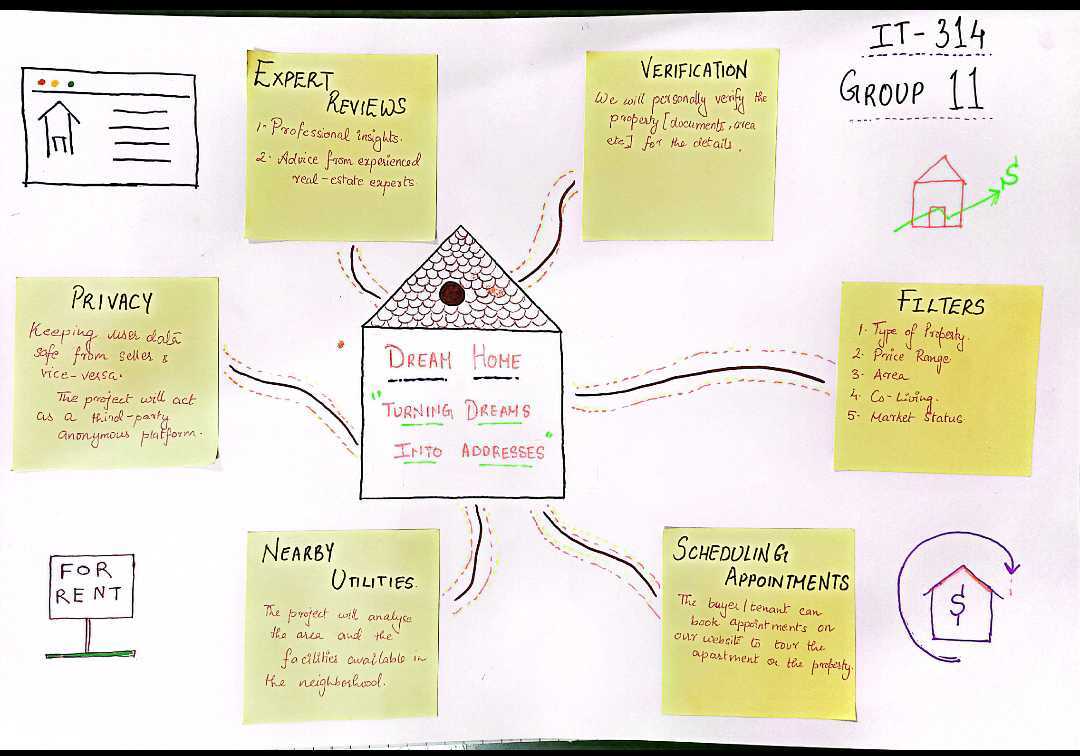 IT-314
GROUP 11
EXPERT
REVIEWS
1. Professional insights.
2. Advice from experienced
real-estate experts
VERIFICATION
We will personally verify the
property [documents, area
etc] for the details.
$
PRIVACY
Keeping user data
safe from seller &
vice-versa.
The project will act
as a third-party
anonymous platform.
DREAM HOME
"TURNING DREAMS
INTO ADDRESSES"
FILTERS
1. Type of Property.
2. Price Range
3. Area
4. Co-Living.
5. Market Status
FOR
RENT
NEARBY
UTILITIES.
The project will analyse
the area and the
facilities available in
the neighborhood.
SCHEDULING
APPOINTMENTS
The buyer/tenant can
book appointments on
our website to tour the
apartment or the property.
$